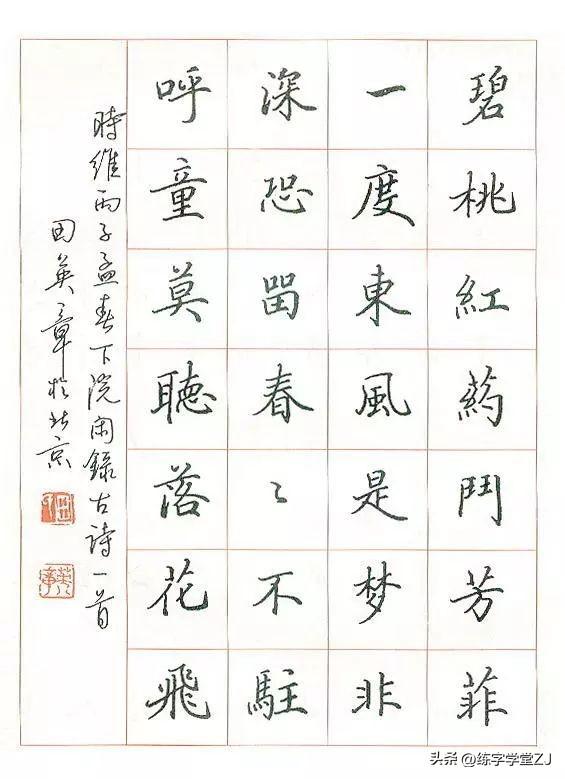 碧桃紅葯鬥芳菲
一度東風是梦非
深恐㽞春〻不駐
呼童莫聽落花飛
時維丙子孟春下院閑錄古詩一首
田英章於北京
头条 @练字学堂ZJ